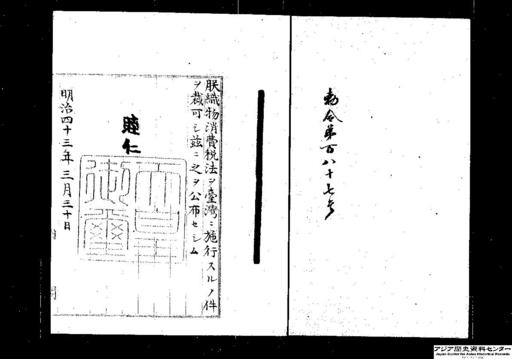 勅令第百八十七号
朕織物消費税法ヲ臺灣ニ施行スルノ件
ヲ裁可シ茲ニ之ヲ公布セシム
睦仁
天皇御璽
明治四十三年三月三十日
アジア歴史資料センター
Japan Center for Asian Historical Records